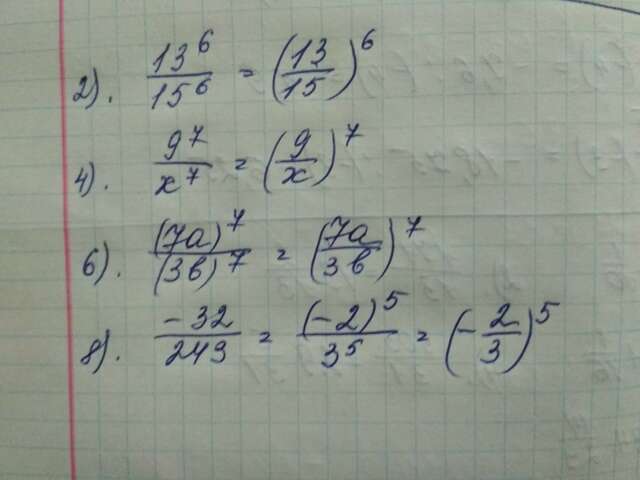 2). 13⁶/15⁶ = (13/15)⁶
4). 9⁷/x⁷ = (9/x)⁷
6). (7a)⁷/(3b)⁷ = (7a/3b)⁷
8). -32/243 = (-2)⁵/3⁵ = (-2/3)⁵